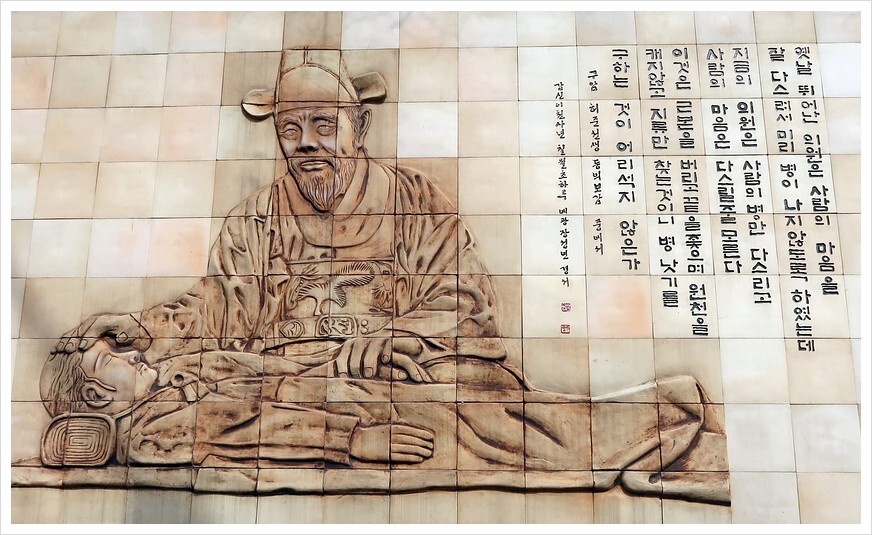 옛날 뛰어난 의원은 사람의 마음을
잘 다스려서 미리 병이 나지 않도록 하였는데
지금의 의원은 사람의 병만 다스리고
사람의 마음은 다스릴줄을 모른다
이것은 근본을 버리고 끝을 좇으며 원천을
캐지않고 지류만 찾는것이니 병 낫기를
구하는 것이 어리석지 않은가
구암 허준선생 동의보감 중에서
갑신이천사년 칠월초하루